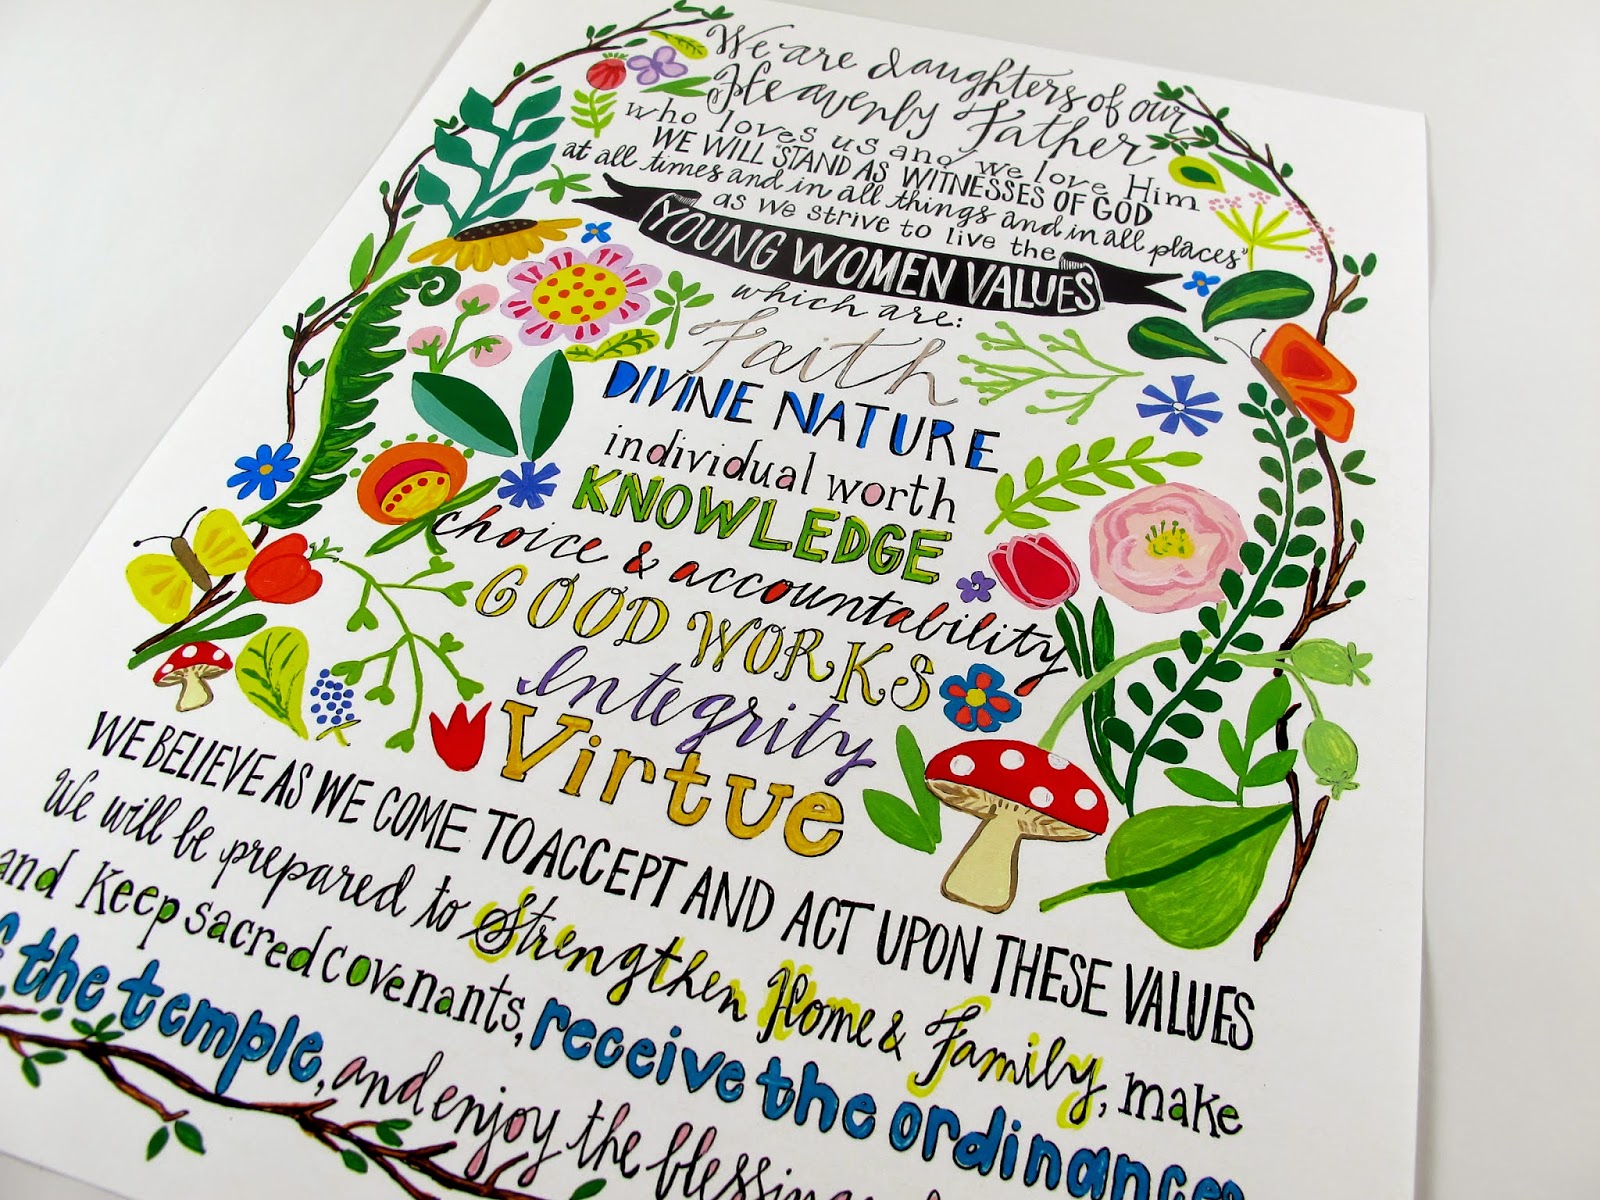 We are daughters of our
Heavenly Father
who loves us and we love Him
WE WILL "STAND AS WITNESSES OF GOD
at all times and in all things and in all places"
as we strive to live the
YOUNG WOMEN VALUES
which are:
Faith
DIVINE NATURE
individual worth
KNOWLEDGE
choice & accountability
GOOD WORKS
Integrity
Virtue
WE BELIEVE AS WE COME TO ACCEPT AND ACT UPON THESE VALUES
We will be prepared to Strengthen Home & Family, make
and keep sacred covenants, receive the ordinances
the temple, and enjoy the blessings